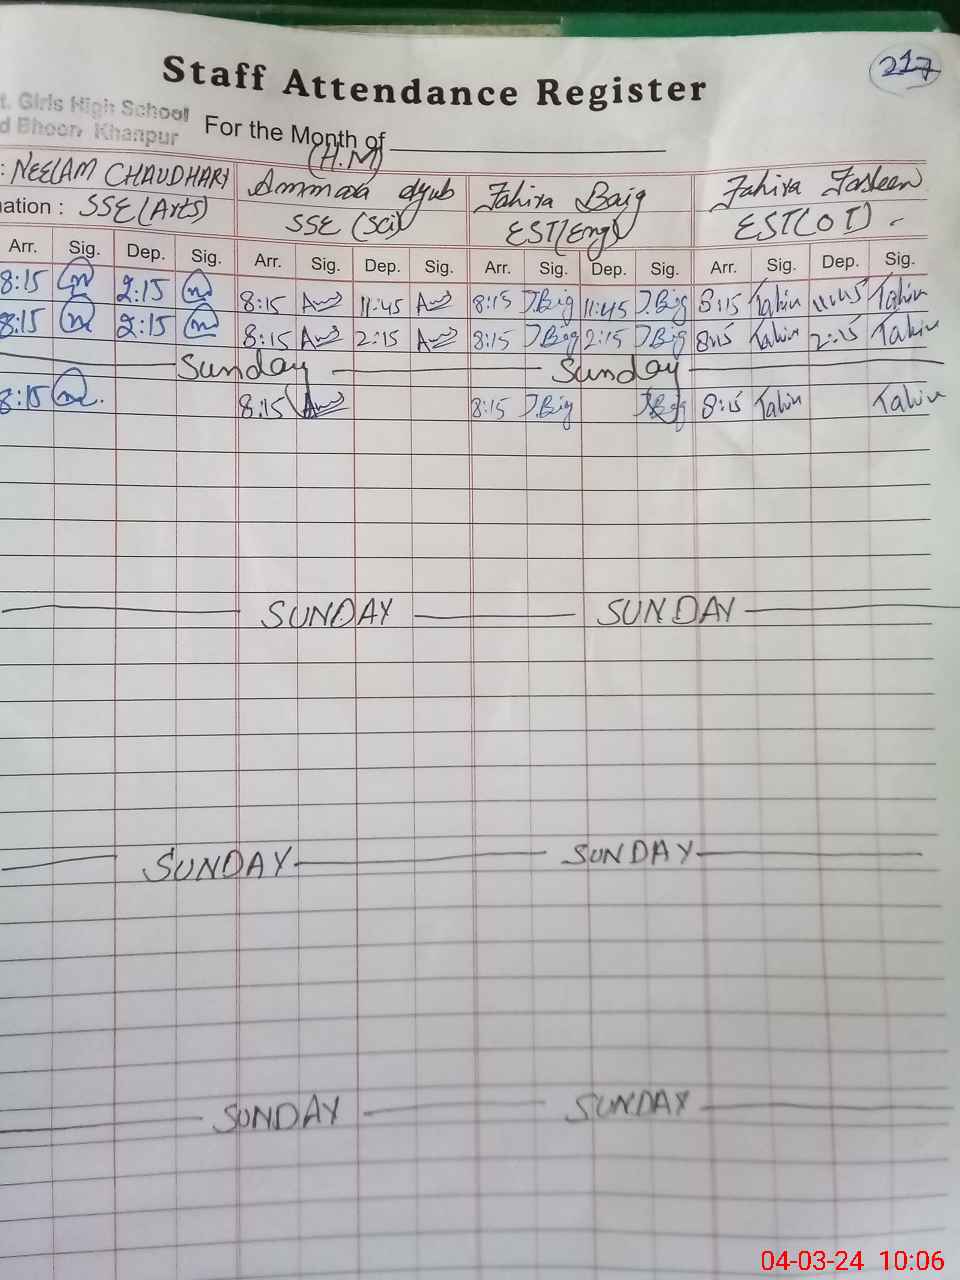 217
Staff Attendance Register
t. Girls High School
d Bhoon Khanpur
For the Month of
(H.M)
: NEELAM CHAUDHARY Ammara Ayub Tahira Baig Tahira Tasleem
nation : SSE (Arts) SSE (Sci) EST(Eng) EST(OT)
Arr. Sig. Dep. Sig. Arr. Sig. Dep. Sig. Arr. Sig. Dep. Sig. Arr. Sig. Dep. Sig.
8:15 2:15 8:15 11:45 8:15 T.Big 11:45 T.Big 8:15 Tahir 11:45 Tahir
8:15 2:15 8:15 2:15 8:15 T.Big 2:15 T.Big 8:15 Tahir 2:15 Tahir
Sunday Sunday
8:15 8:15 8:15 T.Big T.Big 8:15 Tahir Tahir
SUNDAY SUNDAY
SUNDAY SUNDAY
SUNDAY SUNDAY
04-03-24 10:06